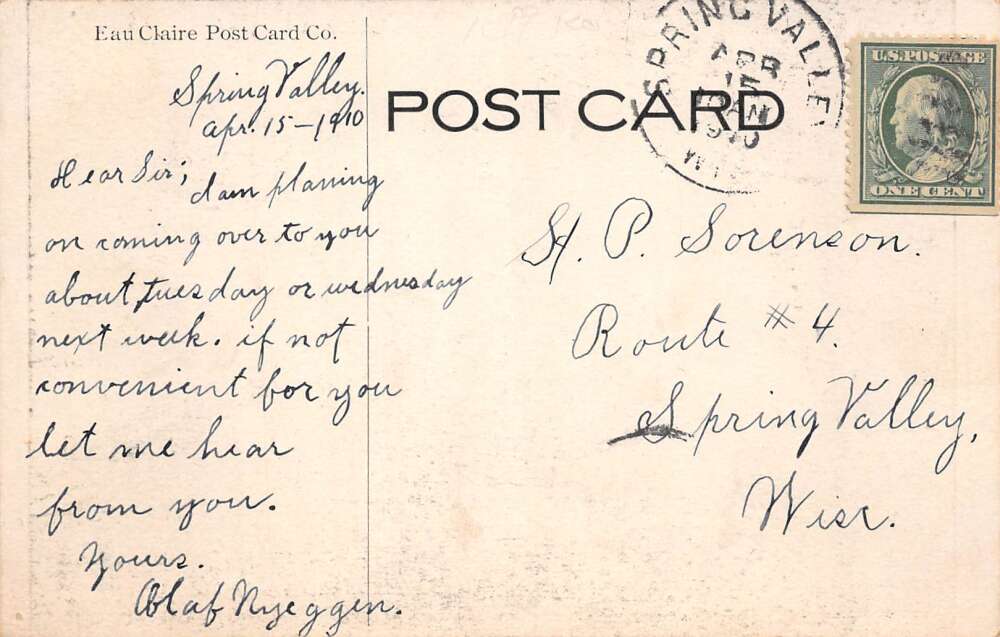 Eau Claire Post Card Co.
Spring Valley.
Apr. 15-1910
POST CARD
SPRING VALLEY
APR
15
1910
U.S. POSTAGE
ONE CENT
Dear Sir; I am planing
on coming over to you
about tuesday or wednesday
next week. if not
convenient for you
let me hear
from you.
Yours.
Olaf Nyeggen.
H. P. Sorenson.
Route #4.
Spring Valley,
Wisc.